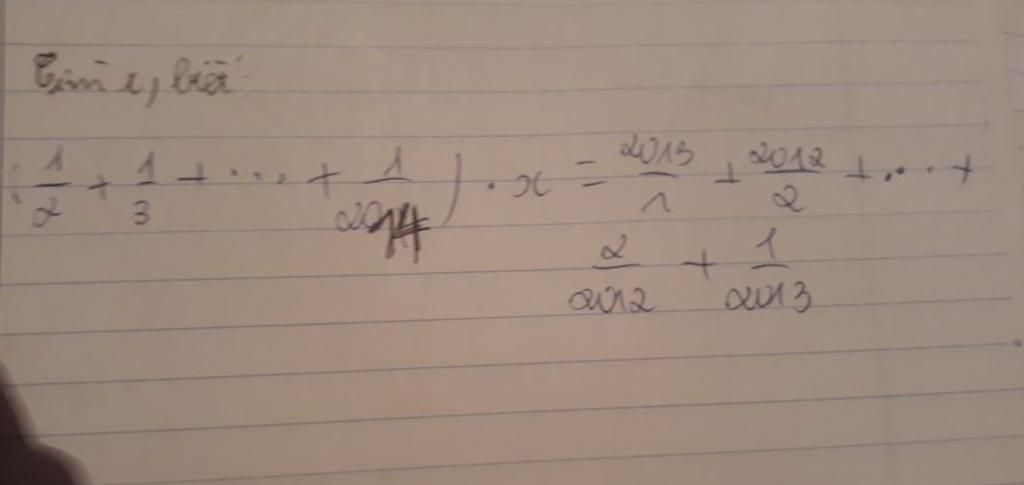 Tìm x, biết:
( 1/2 + 1/3 + ... + 1/2014 ) . x = 2013/1 + 2012/2 + ... +
2/2012 + 1/2013